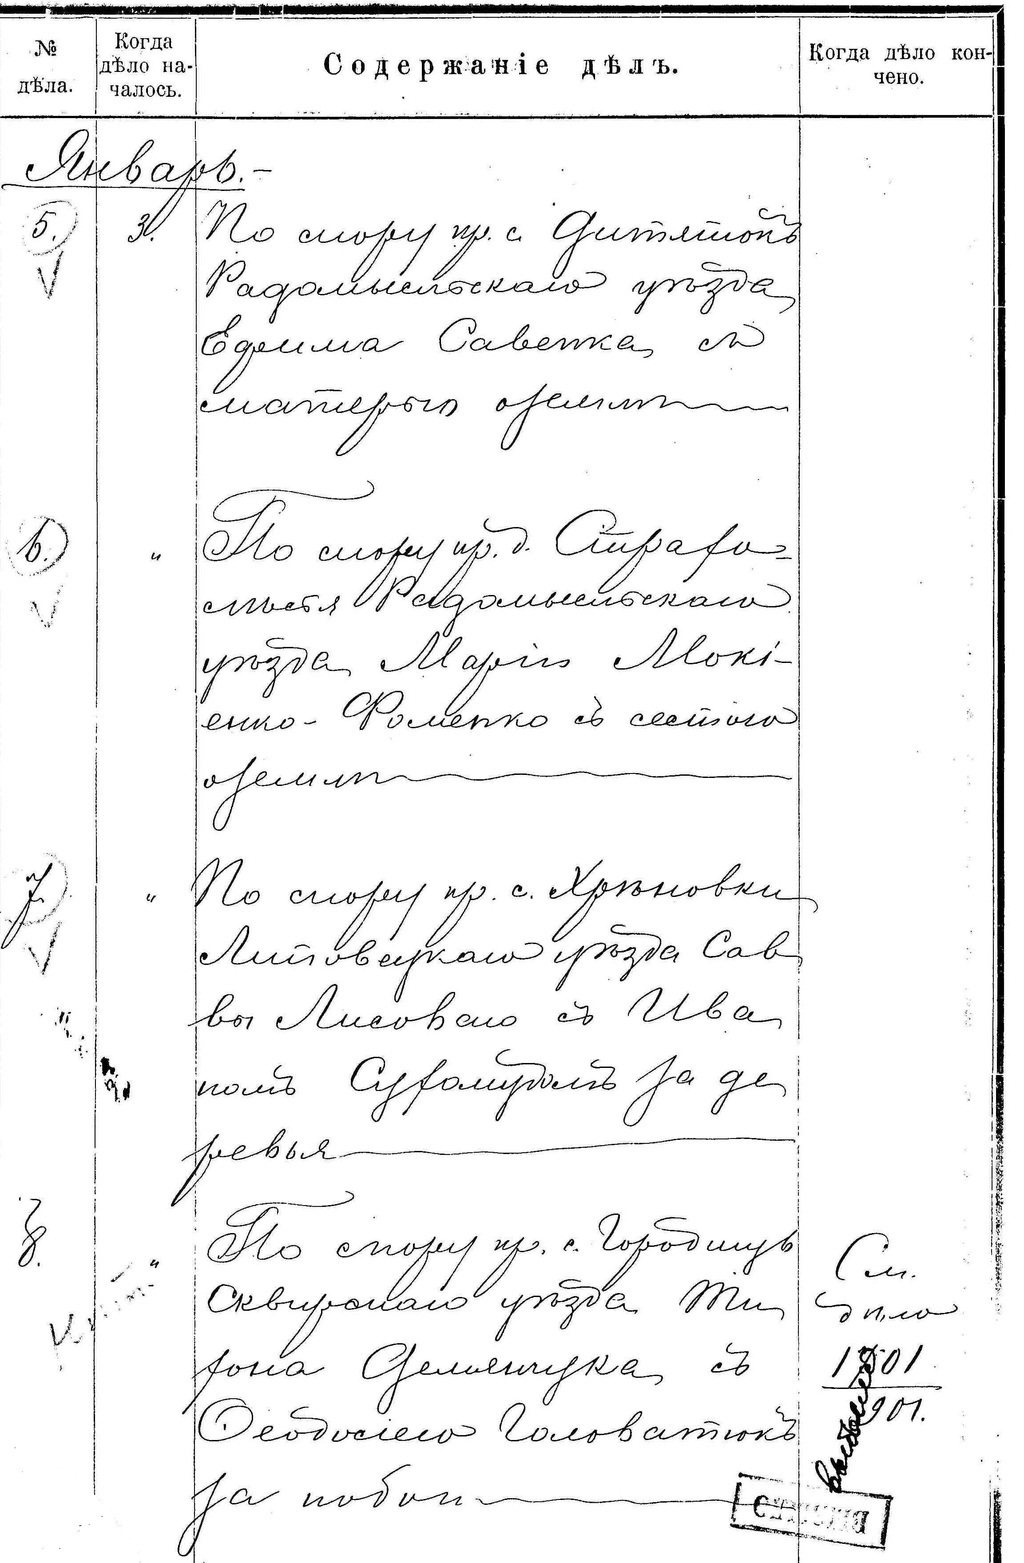 № дѣла.
Когда дѣло на-чалось.
Содержаніе дѣлъ.
Когда дѣло кон-чено.
Январь.-
5. 3. По спору кр. с. Дитятокъ
Радомысльскаго уѣзда
Ефима Савенка съ
матерью о землѣ
6. " По спору кр. д. Страхо-
лѣсья Радомысльскаго
уѣзда Маріи Мокі-
енко-Фоменко съ сестрою
о землѣ
7. " По спору кр. с. Хрѣновки
Липовецкаго уѣзда Сав
вы Лисоваго съ Ива
номъ за де
ревья
8. " По спору кр. с. Городищъ
Сквирскаго уѣзда
Демянчука съ
Ѳеодосіею Головатюкъ
за побои
См.
дѣло
1501
901.
выбыло